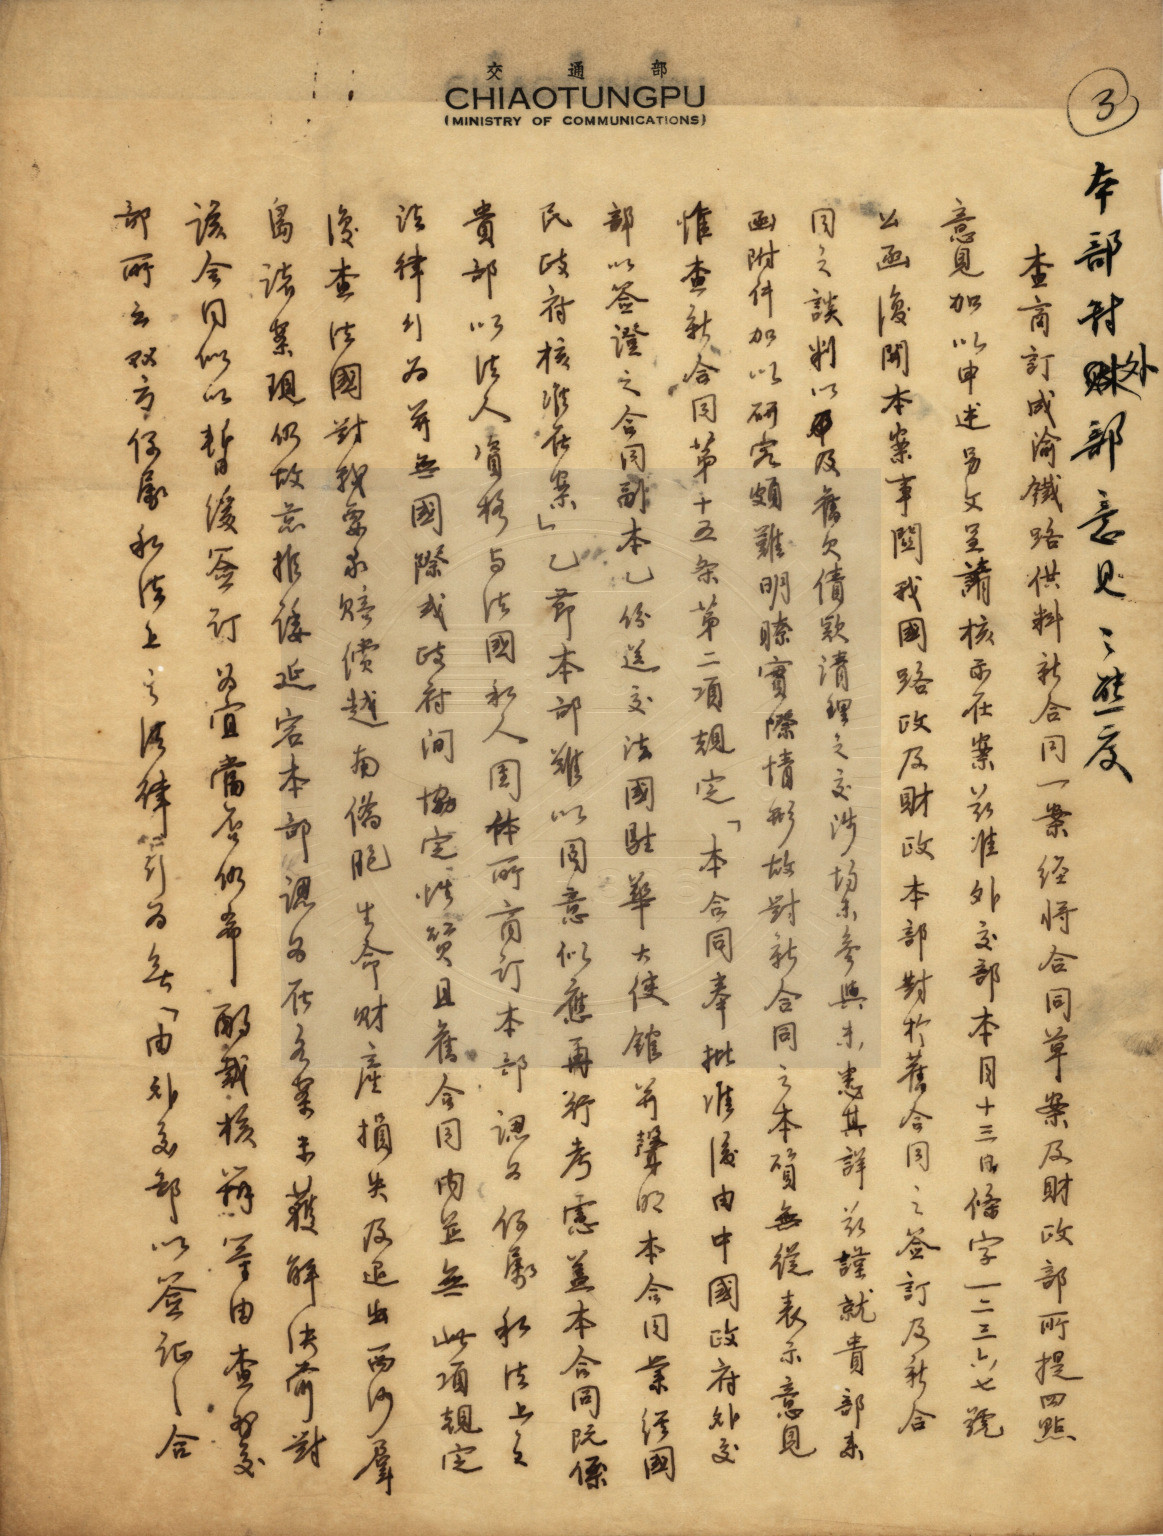 交通部
CHIAOTUNGPU
(MINISTRY OF COMMUNICATIONS)
3
本部对外部意見之態度
查商訂成渝鐵路供料新合同一案經將合同草案及財政部所提四點
意見加以申述另文呈請核示在案茲准外交部本月十三日條字一二三六七號
公函復開本案事關我國路政及財政本部對於舊合同之簽訂及新合
同之談判以及舊欠債款清理之交涉均未參與未悉其詳茲謹就貴部來
函附件加以研究頗難明瞭實際情形故對新合同之本質無從表示意見
惟查新合同第十五条第二項規定「本合同奉批准後由中國政府外交
部以簽證之合同副本乙份送交法國駐華大使館並聲明本合同業經國
民政府核准在案」乙節本部難以同意似應再行考慮蓋本合同既係
貴部以法人資格与法國私人團体所商訂本部認为係屬私法上之
法律行为並無國際或政府间協定性質且舊合同內並無此項規定
復查法國對我要求賠償越南僑胞生命財產損失及退出西沙羣
島諸案現仍故意推諉延宕本部認为在各案未獲解決前對
該合同似以暫緩簽訂为宜當否仍希酌裁核辦等由查外交
部所云双方係屬私法上之法律行为無「由外交部以簽証之合